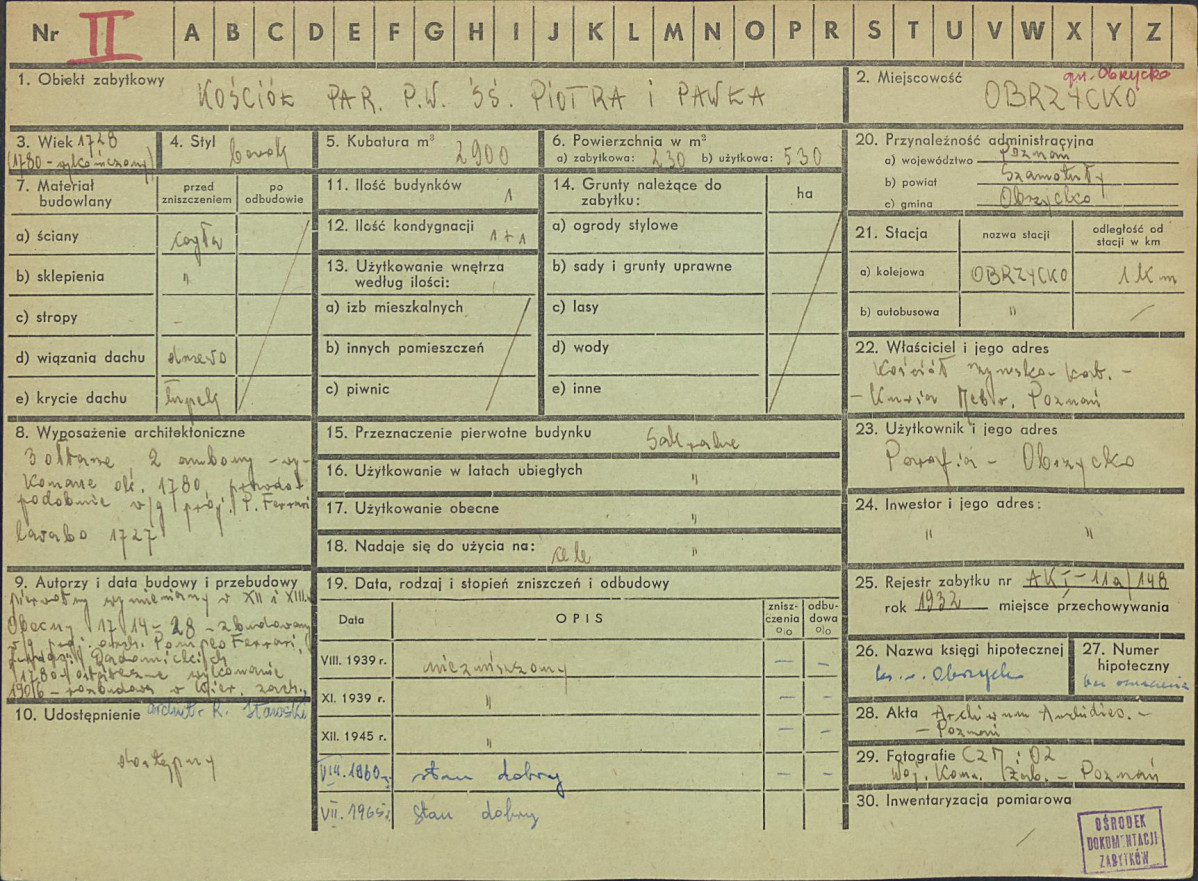 Nr II A B C D E F G H I J K L M N O P R S T U V W X Y Z
1. Obiekt zabytkowy
KOŚCIÓŁ PAR. P.W. ŚŚ. PIOTRA i PAWŁA
2. Miejscowość
gm. Obrzycko
OBRZYCKO
3. Wiek 1728
(1780 - wykończony)
4. Styl barok
5. Kubatura m³ 2900
6. Powierzchnia w m²
a) zabytkowa: 230 b) użytkowa: 530
7. Materiał budowlany
przed zniszczeniem
po odbudowie
a) ściany cegła
b) sklepienia "
c) stropy -
d) wiązania dachu drewno
e) krycie dachu łupek
8. Wyposażenie architektoniczne
3 ołtarze, 2 ambony - wy-
konane ok. 1780, prawdo-
podobnie w/g proj. P. Ferrari
lavabo 1727
9. Autorzy i data budowy i przebudowy
pierwotny wymieniany w XII i XIII w.
Obecny 1714-28 - zbudowany
w/g proj. arch. Pompeo Ferrari,
1780 - ostateczne wykończenie
1906 - rozbudowa w kier. zach.,
archit. R. Sławski
10. Udostępnienie
dostępny
11. Ilość budynków 1
12. Ilość kondygnacji 1+1
13. Użytkowanie wnętrza
według ilości:
a) izb mieszkalnych
b) innych pomieszczeń
c) piwnic
14. Grunty należące do
zabytku:
ha
a) ogrody stylowe
b) sady i grunty uprawne
c) lasy
d) wody
e) inne
15. Przeznaczenie pierwotne budynku sakralne
16. Użytkowanie w latach ubiegłych "
17. Użytkowanie obecne "
18. Nadaje się do użycia na: cele "
19. Data, rodzaj i stopień zniszczeń i odbudowy
Data
OPIS
znisz-
czenia
%
odbu-
dowa
%
VIII. 1939 r. niezniszczony - -
XI. 1939 r. " - -
XII. 1945 r. " - -
VIII. 1960 r. stan dobry - -
VII. 1965 r. stan dobry
20. Przynależność administracyjna
a) województwo Poznań
b) powiat Szamotuły
c) gmina Obrzycko
21. Stacja
nazwa stacji
odległość od
stacji w km
a) kolejowa OBRZYCKO 1 km
b) autobusowa "
22. Właściciel i jego adres
Kościół rzymsko-kat. -
- Kuria Metr. Poznań
23. Użytkownik i jego adres
Parafia - Obrzycko
24. Inwestor i jego adres:
" "
25. Rejestr zabytku nr AK I - 11a/148
rok 1932 miejsce przechowywania
26. Nazwa księgi hipotecznej
ks. w. Obrzycko
27. Numer
hipoteczny
bez oznaczenia
28. Akta Archiwum Archidiec. -
- Poznań
29. Fotografie CZM i OZ
Woj. Kons. Zab. - Poznań
30. Inwentaryzacja pomiarowa
OŚRODEK
DOKUMENTACJI
ZABYTKÓW